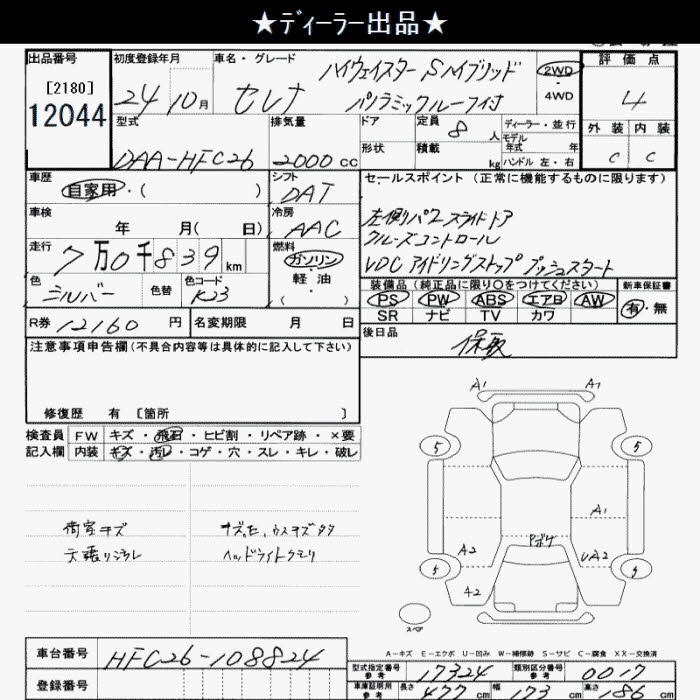 ★ディーラー出品★
出品番号
[2180]
12044
初度登録年月
24 10月
車名・グレード
ハイウェイスター Sハイブリッド
セレナ パノラミックルーフ付
2WD
・
4WD
評価点
4
外装 内装
C C
型式
DAA-HFC26
排気量
2000 cc
ドア
形状
定員 8 人
積載 kg
ディーラー・並行
モデル年式 年
ハンドル 左・右
車歴
自家用・( )
シフト
DAT
セールスポイント(正常に機能するものに限ります)
左側パワースライドドア
クルーズコントロール
VDC アイドリングストップ プッシュスタート
車検
年 月( 日)
冷房
AAC
走行
7万0千839km
燃料
ガソリン
・
軽油
( )
色
シルバー
色替
色コード
K23
装備品(純正品に限り〇をつけてください)
PS PW ABS エアB AW
SR ナビ TV カワ
新車保証書
有・無
R券 12160 円
名変期限 月 日
後日品
保取
注意事項申告欄(不具合内容等は具体的に記入して下さい)
修復歴 有 [箇所 ]
検査員
記入欄
FW キズ・飛石・ヒビ割・リペア跡・×要
内装 キズ・汚レ・コゲ・穴・スレ・キレ・破レ
荷室キズ
天張リヨゴレ
ヘッドライトクモリ
A1 A1
5 5
A1
Pボケ
A2 UA2
5 5
A2
スペア
A-キズ E-エクボ U-凹み W-補修跡 S-サビ C-腐食 XX-交換済
車台番号 HFC26-108824
登録番号
型式指定番号
参考
17324
類別区分番号
参考
0017
車庫証明用
参考
長さ 477 cm 幅 173 cm 高さ 186 cm